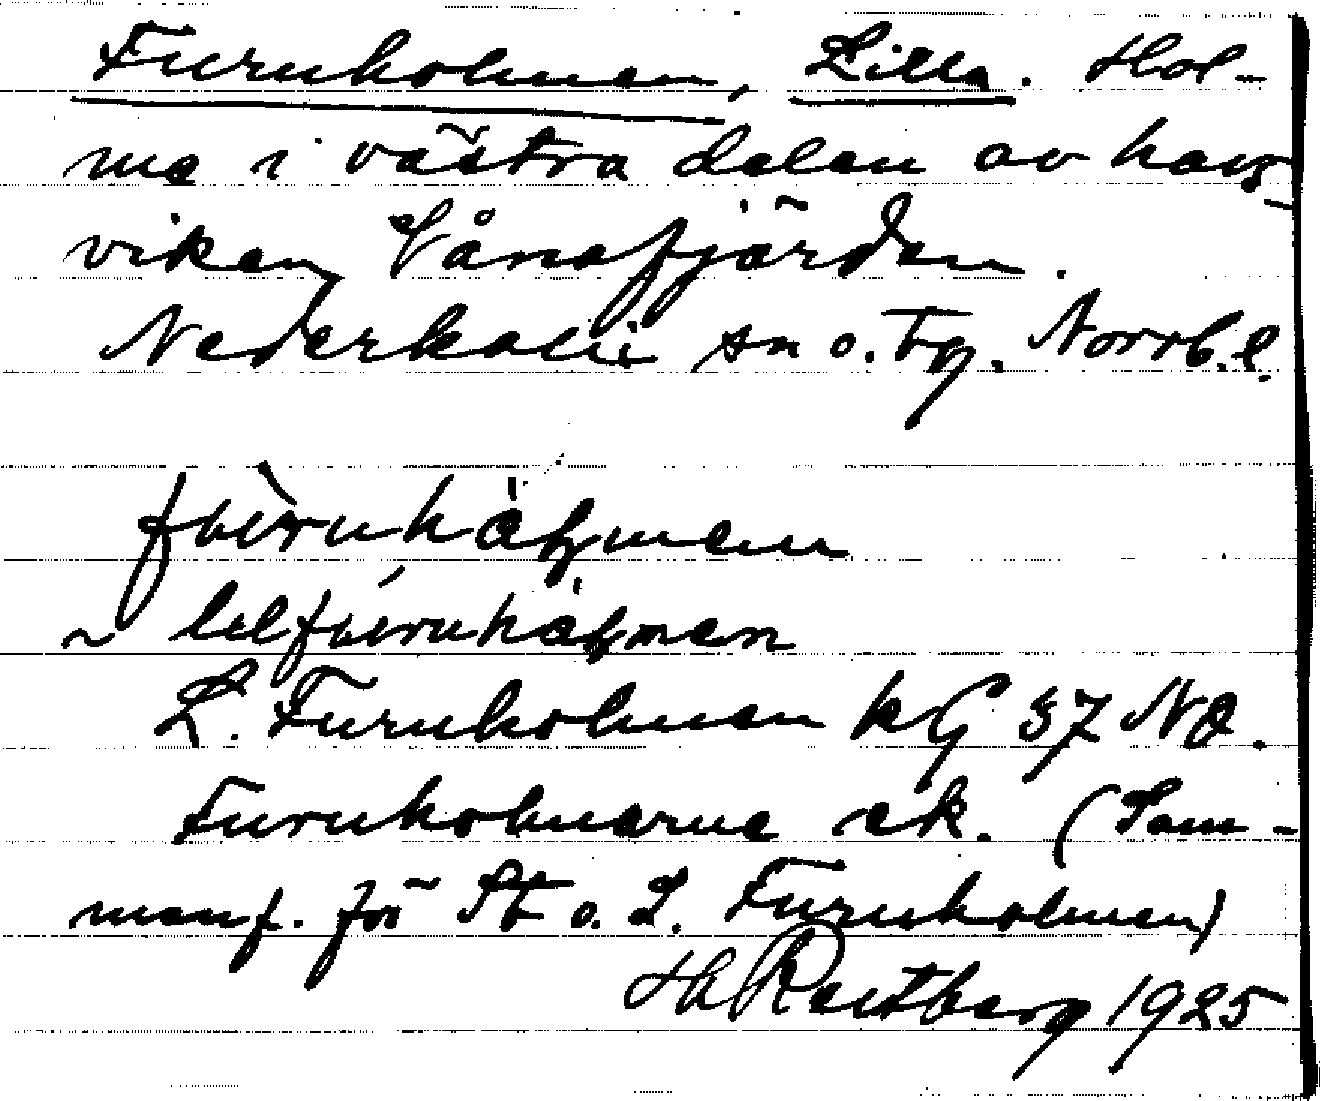 Furuholmen, Lilla. Hol-
me i västra delen av havs-
viken Vånafjärden.
Nederkalix sn o. tg. Norrb. l.
~
L. Furuholmen kG 57 NO.
Furuholmarne ek. (Sam-
manf. för St o. L. Furuholmen)
1925